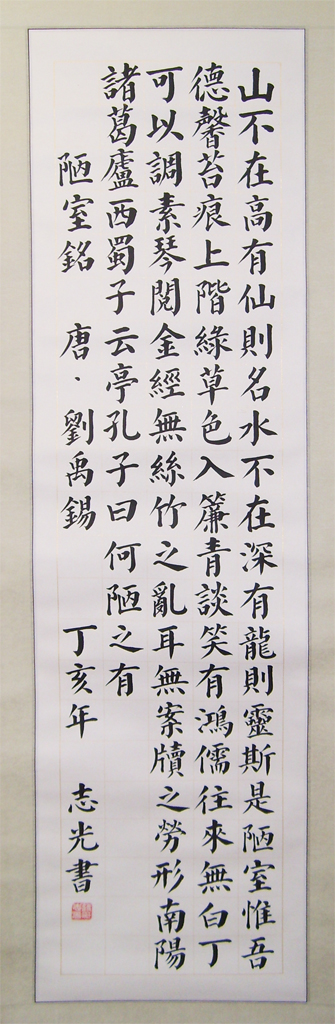 山不在高有仙則名水不在深有龍則靈斯是陋室惟吾
德馨苔痕上階綠草色入簾青談笑有鴻儒往來無白丁
可以調素琴閱金經無絲竹之亂耳無案牘之勞形南陽
諸葛廬西蜀子云亭孔子曰何陋之有
陋室銘 唐·劉禹錫 丁亥年 志光書